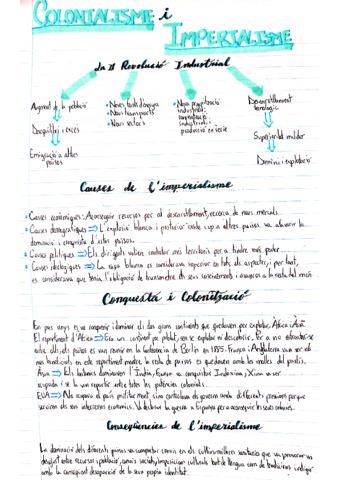 COLONIALISME i
IMPERIALISME
La II Revolució Industrial
Augment de la població
Noves fonts d'energia
Nous transports
Nous sectors
Nova organització
industrial:
concentració
industrial i
producció en sèrie
Desenvolupament
tecnològic
Desequilibri i crisi
Superioritat militar
Emigració a altres
països
Domini i explotació
Causes de l'imperialisme
Causes econòmiques: Aconseguir recursos per al desenvolupament, recerca de nous mercats.
Causes demogràfiques ⇒ L'explosió blanca i posterior onada cap a altres països va afavorir la
dominació i conquista d'estos països.
Causes polítiques ⇒ Els dirigents volien controlar més territoris per a tindre més poder.
Causes ideològiques ⇒ La raça blanca es considerava superior en tots els aspectes; per tant,
es considerava que tenia l'obligació de transmetre els seus coneixements i avanços a la resta del món
Conquesta i Colonització
En pocs anys es va conquerir i dominar els dos grans continents que quedaven per explotar, Àfrica i Àsia.
El repartiment d'Àfrica ⇒ Era un continent poc poblat, sense explotar ni descobrir. Per a no
entre ells, els països es van reunir en la Conferència de Berlín en 1885. França i Anglaterra van ser els
més beneficiats en este repartiment mentre la resta de països es quedaven amb les molles del pastís.
Àsia ⇒ Els britànics dominaven l'Índia, França va conquistar Indoxina i Xina va ser
ocupada i se la van repartir entre totes les potències colonials.
EUA ⇒ No ocupava el país políticament, sinó controlava els governs amb diferents pressions perquè
serviren als seus interessos econòmics. Va declarar la guerra a Espanya per a aconseguir les seues colònies.
Conseqüències de l'imperialisme
La dominació dels diferents països va comportar canvis en els cultius
desgast entre recursos i població, canvis socials, imposicions culturals tant de llengua com de tradicions indígenes
amb la consegüent desaparició de la seua pròpia identitat.